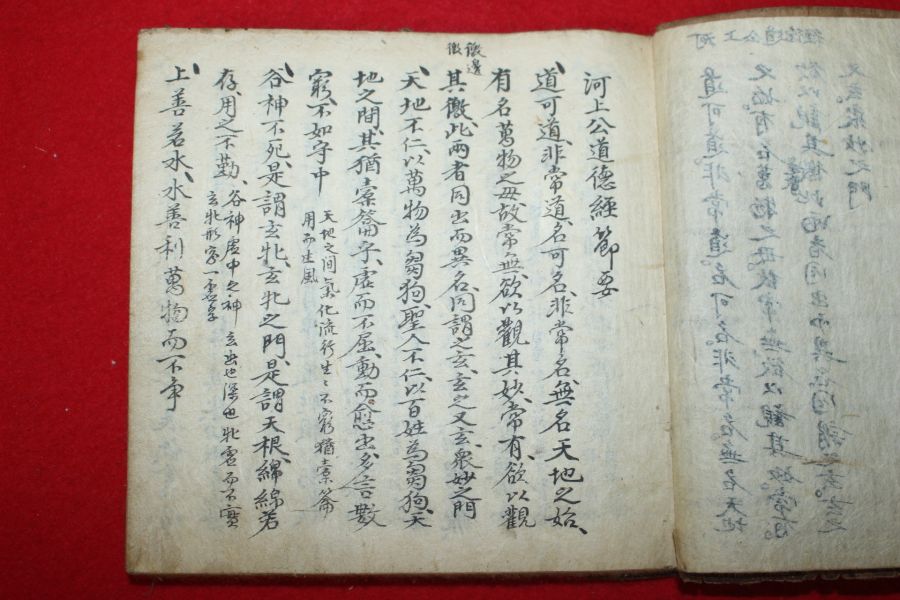 河上公道德經
道可道。非常道。名可名。非常名。無名天地
又玄衆妙之門
河上公道德經節要
道可道非常道名可名非常名無名天地之始
有名萬物之母故常無欲以觀其妙常有欲以觀
徼邊
徼
其徼此兩者同出而異名同謂之玄玄之又玄衆妙之門
天地不仁以萬物為芻狗聖人不仁以百姓為芻狗天
地之間其猶橐籥乎虛而不屈動而愈出多言數
窮不如守中
天地之间氣化流行生〻不窮猶橐籥
用而生風
谷神不死是謂玄牝玄牝之門是謂天根綿綿若
存用之不勤
谷神虛中之神 玄也深也牝虛而不實
玄牝形容一虛字
上善若水水善利萬物而不爭